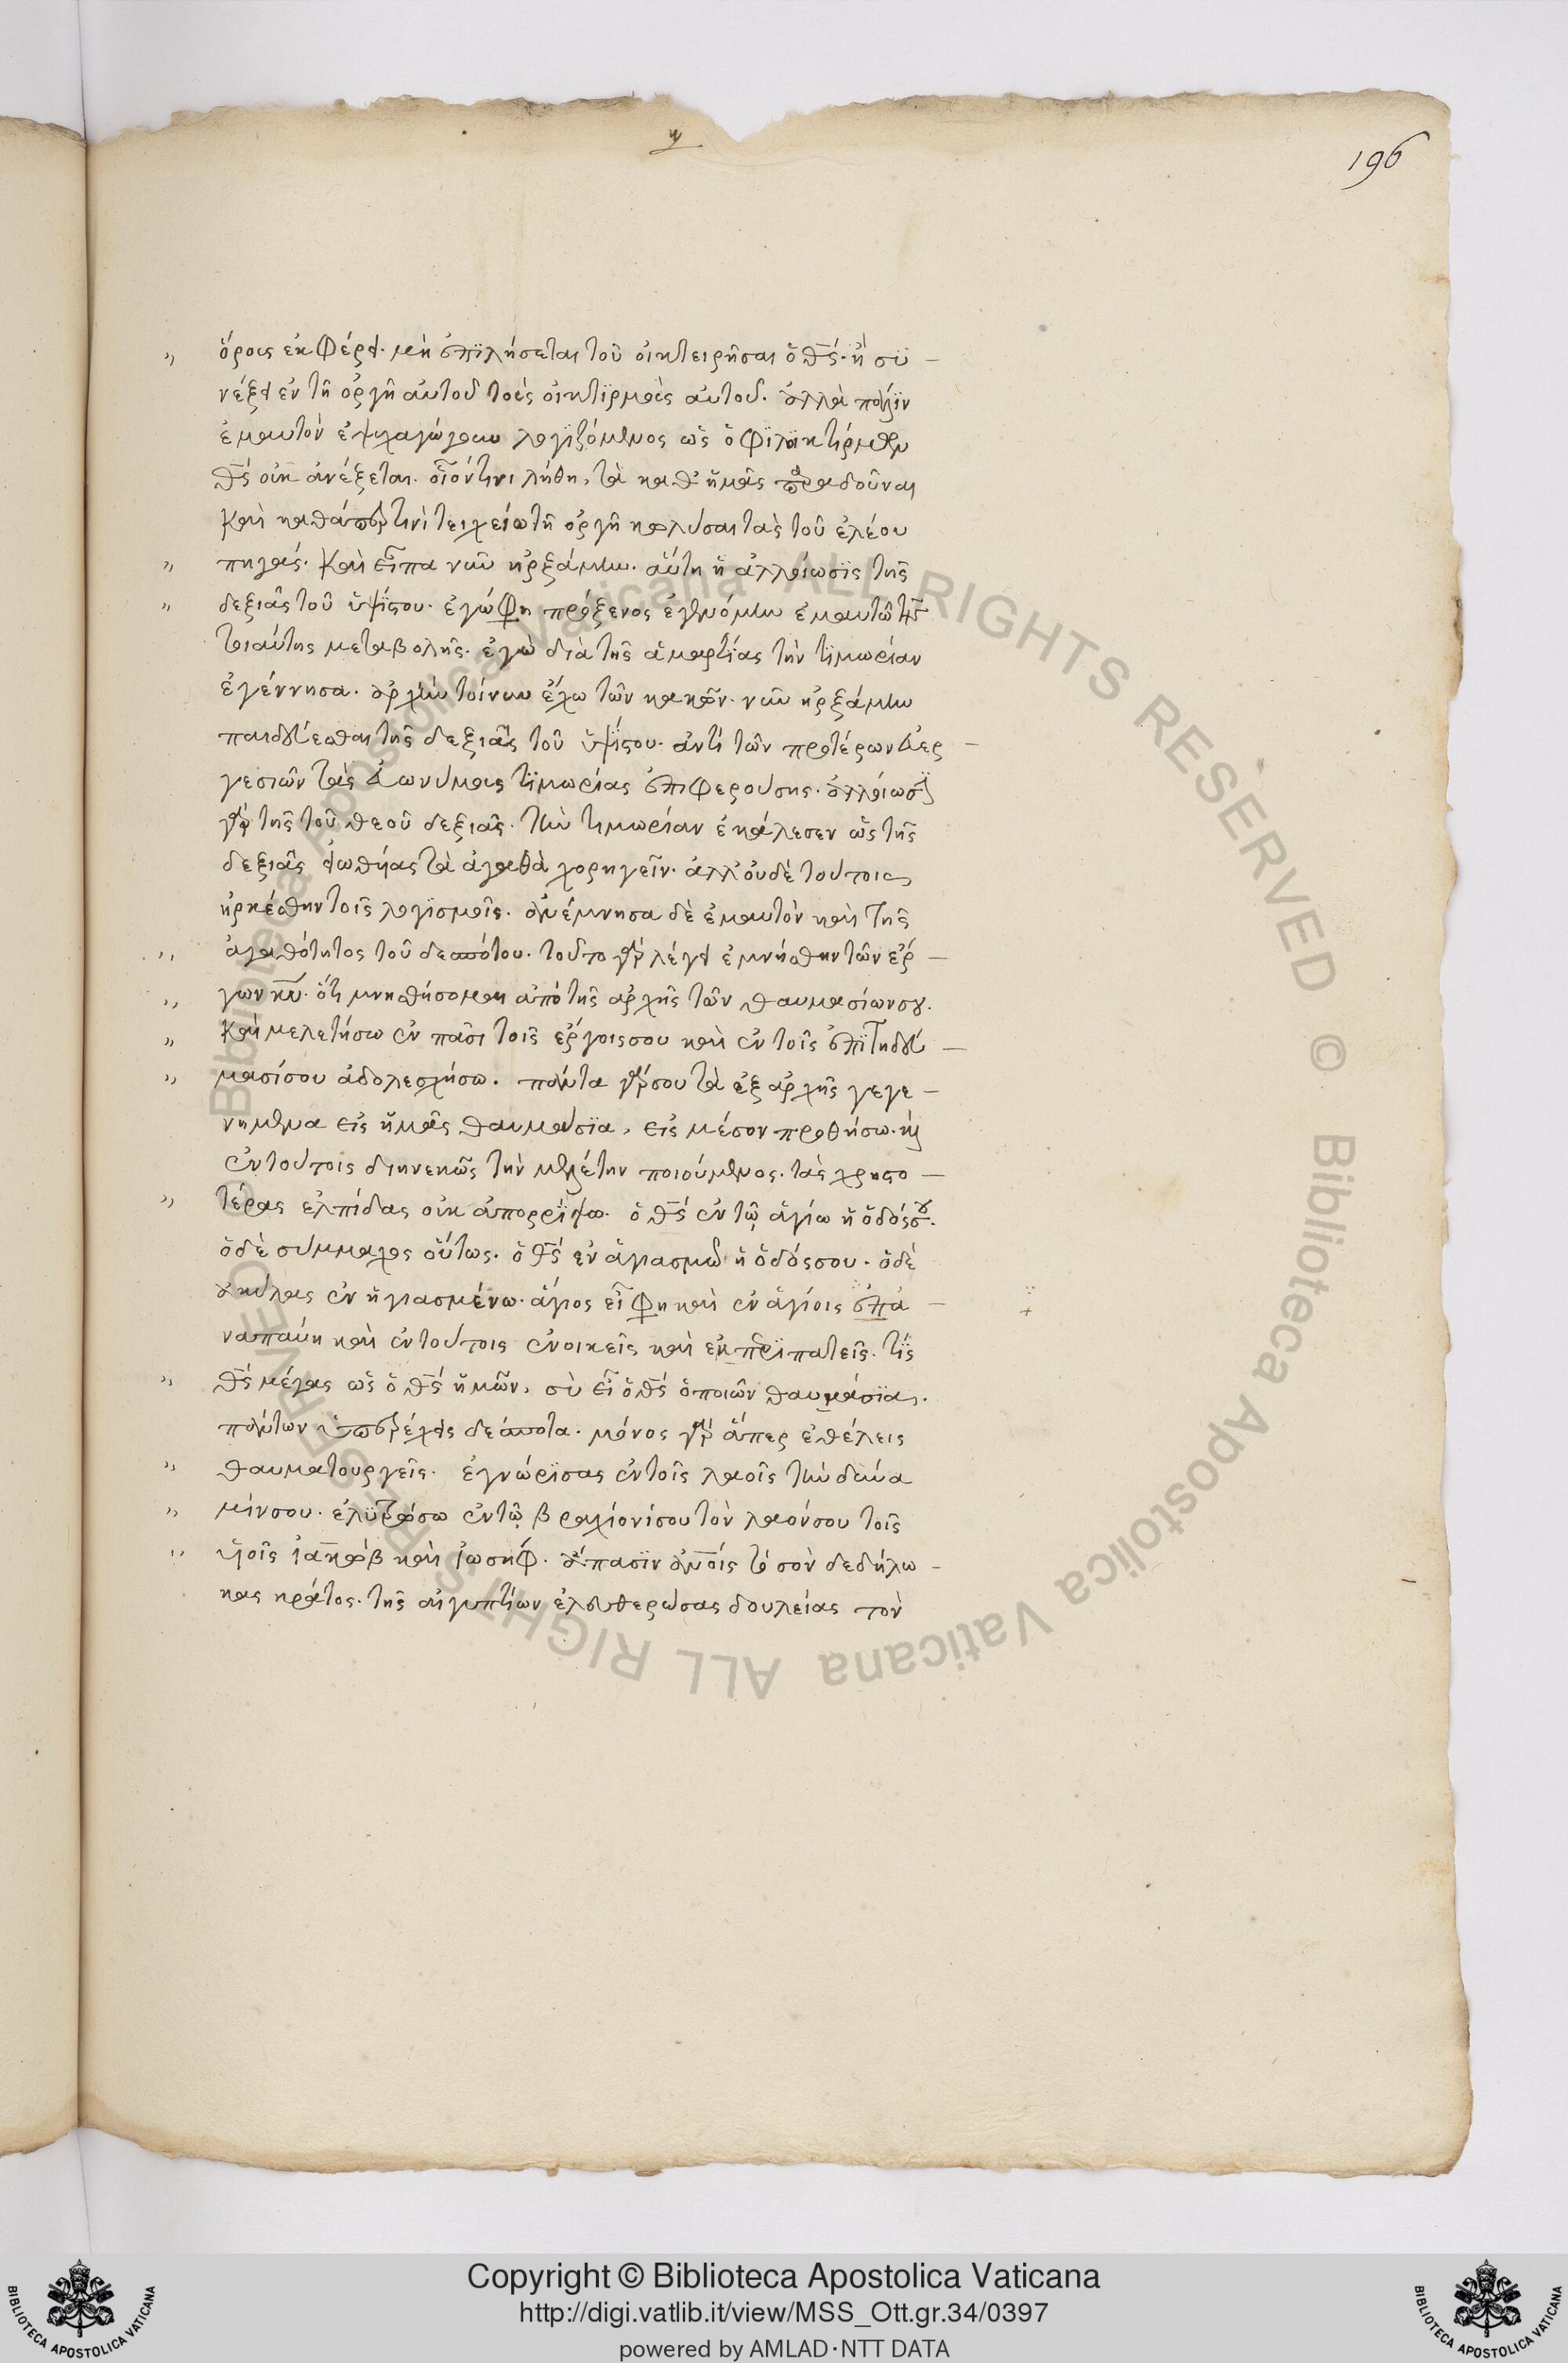 196
ὅρους ἐκφέρει. μὴ ἐπιλήσεται τοῦ οἰκτειρῆσαι ὁ θς. ἢ συ
νέξει ἐν τῇ ὀργῇ αὐτοῦ τοὺς οἰκτιρμοὺς αὐτοῦ. ἀλλὰ πάλιν
ἐμαυτὸν ἐψυχαγώγουν λογιζόμενος ὡς ὁ φιλοικτίρμων
θς οὐκ ἀνέξεται. οἷόν τινι λήθη, τὰ καθ' ἡμᾶς παραδοῦναι
καὶ καθάπερ τινὶ τειχείω τῇ ὀργῇ κωλύσαι τὰς τοῦ ἐλέου
πηγάς. καὶ εἶπα νῦν ἠρξάμην. αὕτη ἡ ἀλλοίωσις τῆς
δεξιᾶς τοῦ ὑψίστου. ἐγώ φη πρόξενος ἐγενόμην ἐμαυτῶ τῆς
τοιαύτης μεταβολῆς. ἐγὼ διὰ τῆς ἁμαρτίας τὴν τιμωρίαν
ἐγέννησα. ἀρχὴν τοίνυν ἔχω τῶν κακῶν. νῦν ἠρξάμην
παιδεύεσθαι τῆς δεξιᾶς τοῦ ὑψίστου. ἀντὶ τῶν προτέρων εὐερ
γεσιῶν τὰς εὐωνύμους τιμωρίας ἐπιφερούσης. ἀλλοίωσιν
γὰρ τῆς τοῦ θεοῦ δεξιᾶς. τὴν τιμωρίαν ἐκάλεσεν ὡς τῆς
δεξιᾶς εἰωθυίας τὰ ἀγαθὰ χορηγεῖν. ἀλλ' οὐδὲ τούτοις
ἠρκέσθην τοῖς λογισμοῖς. ἀνέμνησα δὲ ἐμαυτὸν καὶ τῆς
ἀγαθότητος τοῦ δεσπότου. τοῦτο γὰρ λέγει ἐμνήσθην τῶν ἔρ
γων κυ. ὅτι μνησθήσομαι ἀπὸ τῆς ἀρχῆς τῶν θαυμασίων σου.
καὶ μελετήσω ἐν πᾶσι τοῖς ἔργοις σου καὶ ἐν τοῖς ἐπιτηδεύ
μασί σου ἀδολεσχήσω. πάντα γάρ σου τὰ ἐξ ἀρχῆς γεγε
νημένα εἰς ἡμᾶς θαυμάσια, εἰς μέσον προθήσω. καὶ
ἐν τούτοις διηνεκῶς τὴν μελέτην ποιούμενος. τὰς χρηστο
τέρας ἐλπίδας οὐκ ἀπορρίψω. ὁ θς ἐν τῷ ἁγίω ἡ ὁδός σου.
ὁ δὲ σύμμαχος οὕτως. ὁ θς ἐν ἁγιασμῶ ἡ ὁδός σου. ὁ δὲ
ἀκύλας ἐν ἡγιασμένω. ἅγιος εἶ φη καὶ ἐν ἁγίοις ἐπα
ναπαύη καὶ ἐν τούτοις ἐνοικεῖς καὶ ἐκπεριπατεῖς. τίς
θς μέγας ὡς ὁ θς ἡμῶν, σὺ εἶ ὁ θς ὁ ποιῶν θαυμάσια.
πάντων ὑπερέχεις δέσποτα. μόνος γὰρ ἅπερ ἐθέλεις
θαυματουργεῖς. ἐγνώρισας ἐν τοῖς λαοῖς τὴν δύνα
μίν σου. ἐλυτρώσω ἐν τῷ βραχίονί σου τὸν λαόν σου τοὺς
υἱοὺς ἰακὼβ καὶ ἰωσήφ. ἅπασιν ἀνοις τὸ σὸν δεδήλω
κας κράτος. τῆς αἰγυπτίων ἐλευθερώσας δουλείας τὸν
Copyright © Biblioteca Apostolica Vaticana
http://digi.vatlib.it/view/MSS_Ott.gr.34/0397
powered by AMLAD·NTT DATA
BIBLIOTECA APOSTOLICA VATICANA
BIBLIOTECA APOSTOLICA VATICANA
© Biblioteca Apostolica Vaticana ALL RIGHTS RESERVED © Biblioteca Apostolica Vaticana ALL RIGHTS RESERVED